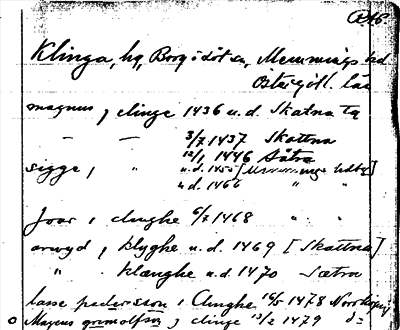 Klinga, hg, Borg ö dot sn, Memmings hd
Östergötl. län
magnus j clinge 1436 u.d. Skatna ta
— — 3/7 1437 Skattna
12/1 1446 Sätra
sigge j " u.d. 1455 [Memmings hdby]
u.d. 1466 " "
Joar i clinghe 6/7 1468 " "
arwyd j klyghe u.d. 1469 [Skattna]
" klænghe u.d 1470 Sætra
lasse pedersson i Clinghe 1478 Norrköping
Magnus grimolfson j clinge 13/2 1479 d:o